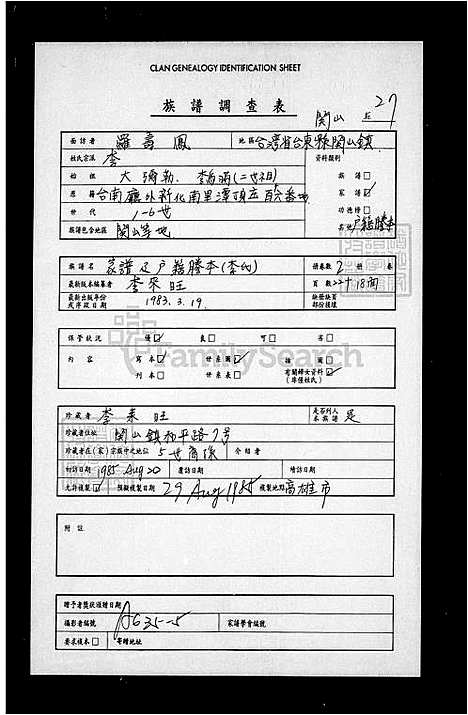 CLAN GENEALOGY IDENTIFICATION SHEET
族 譜 調 查 表
関山 27
面訪者 羅 鳳 地區 台灣省台東縣関山鎮
姓氏宗派 李 資料類別
始祖 大彌勒. (二世祖) 族譜□
原籍 台南廳外新化南里潭頂庄 番地 家譜☑
世代 1-6世 功德榜□
族譜包含地區 関山等地 其他 户籍謄本
族譜名 家譜及户籍謄本(李氏) 冊卷數 2 冊 卷
最新版本編纂者 李 旺 頁數 22+18面
最新出版年份或序跋日期 1983.3.19. 缺冊缺頁部份接續
保管狀況 優☑ 良□ 可□ 劣□
內容 寫本☑ 世系圖☑ 插圖□
刊本□ 世系表□ 有關婦女資料☑(啤僅姓氏)
FamilySearch
珍藏者 李 旺 是否列入本族譜 是
珍藏者住址 関山鎮和平路7号
珍藏者在(家)宗族中之地位 5世裔孫 介紹者
初訪日期 1985 Aug 20 覆訪日期 增訪日期
允許複製☑ 預擬複製日期 29 Aug 1985 複製地點 高雄市
附註
贈予者獎狀頒贈日期
攝影者編號 A635-5 家譜學會編號
要求複本□ 寄贈地址